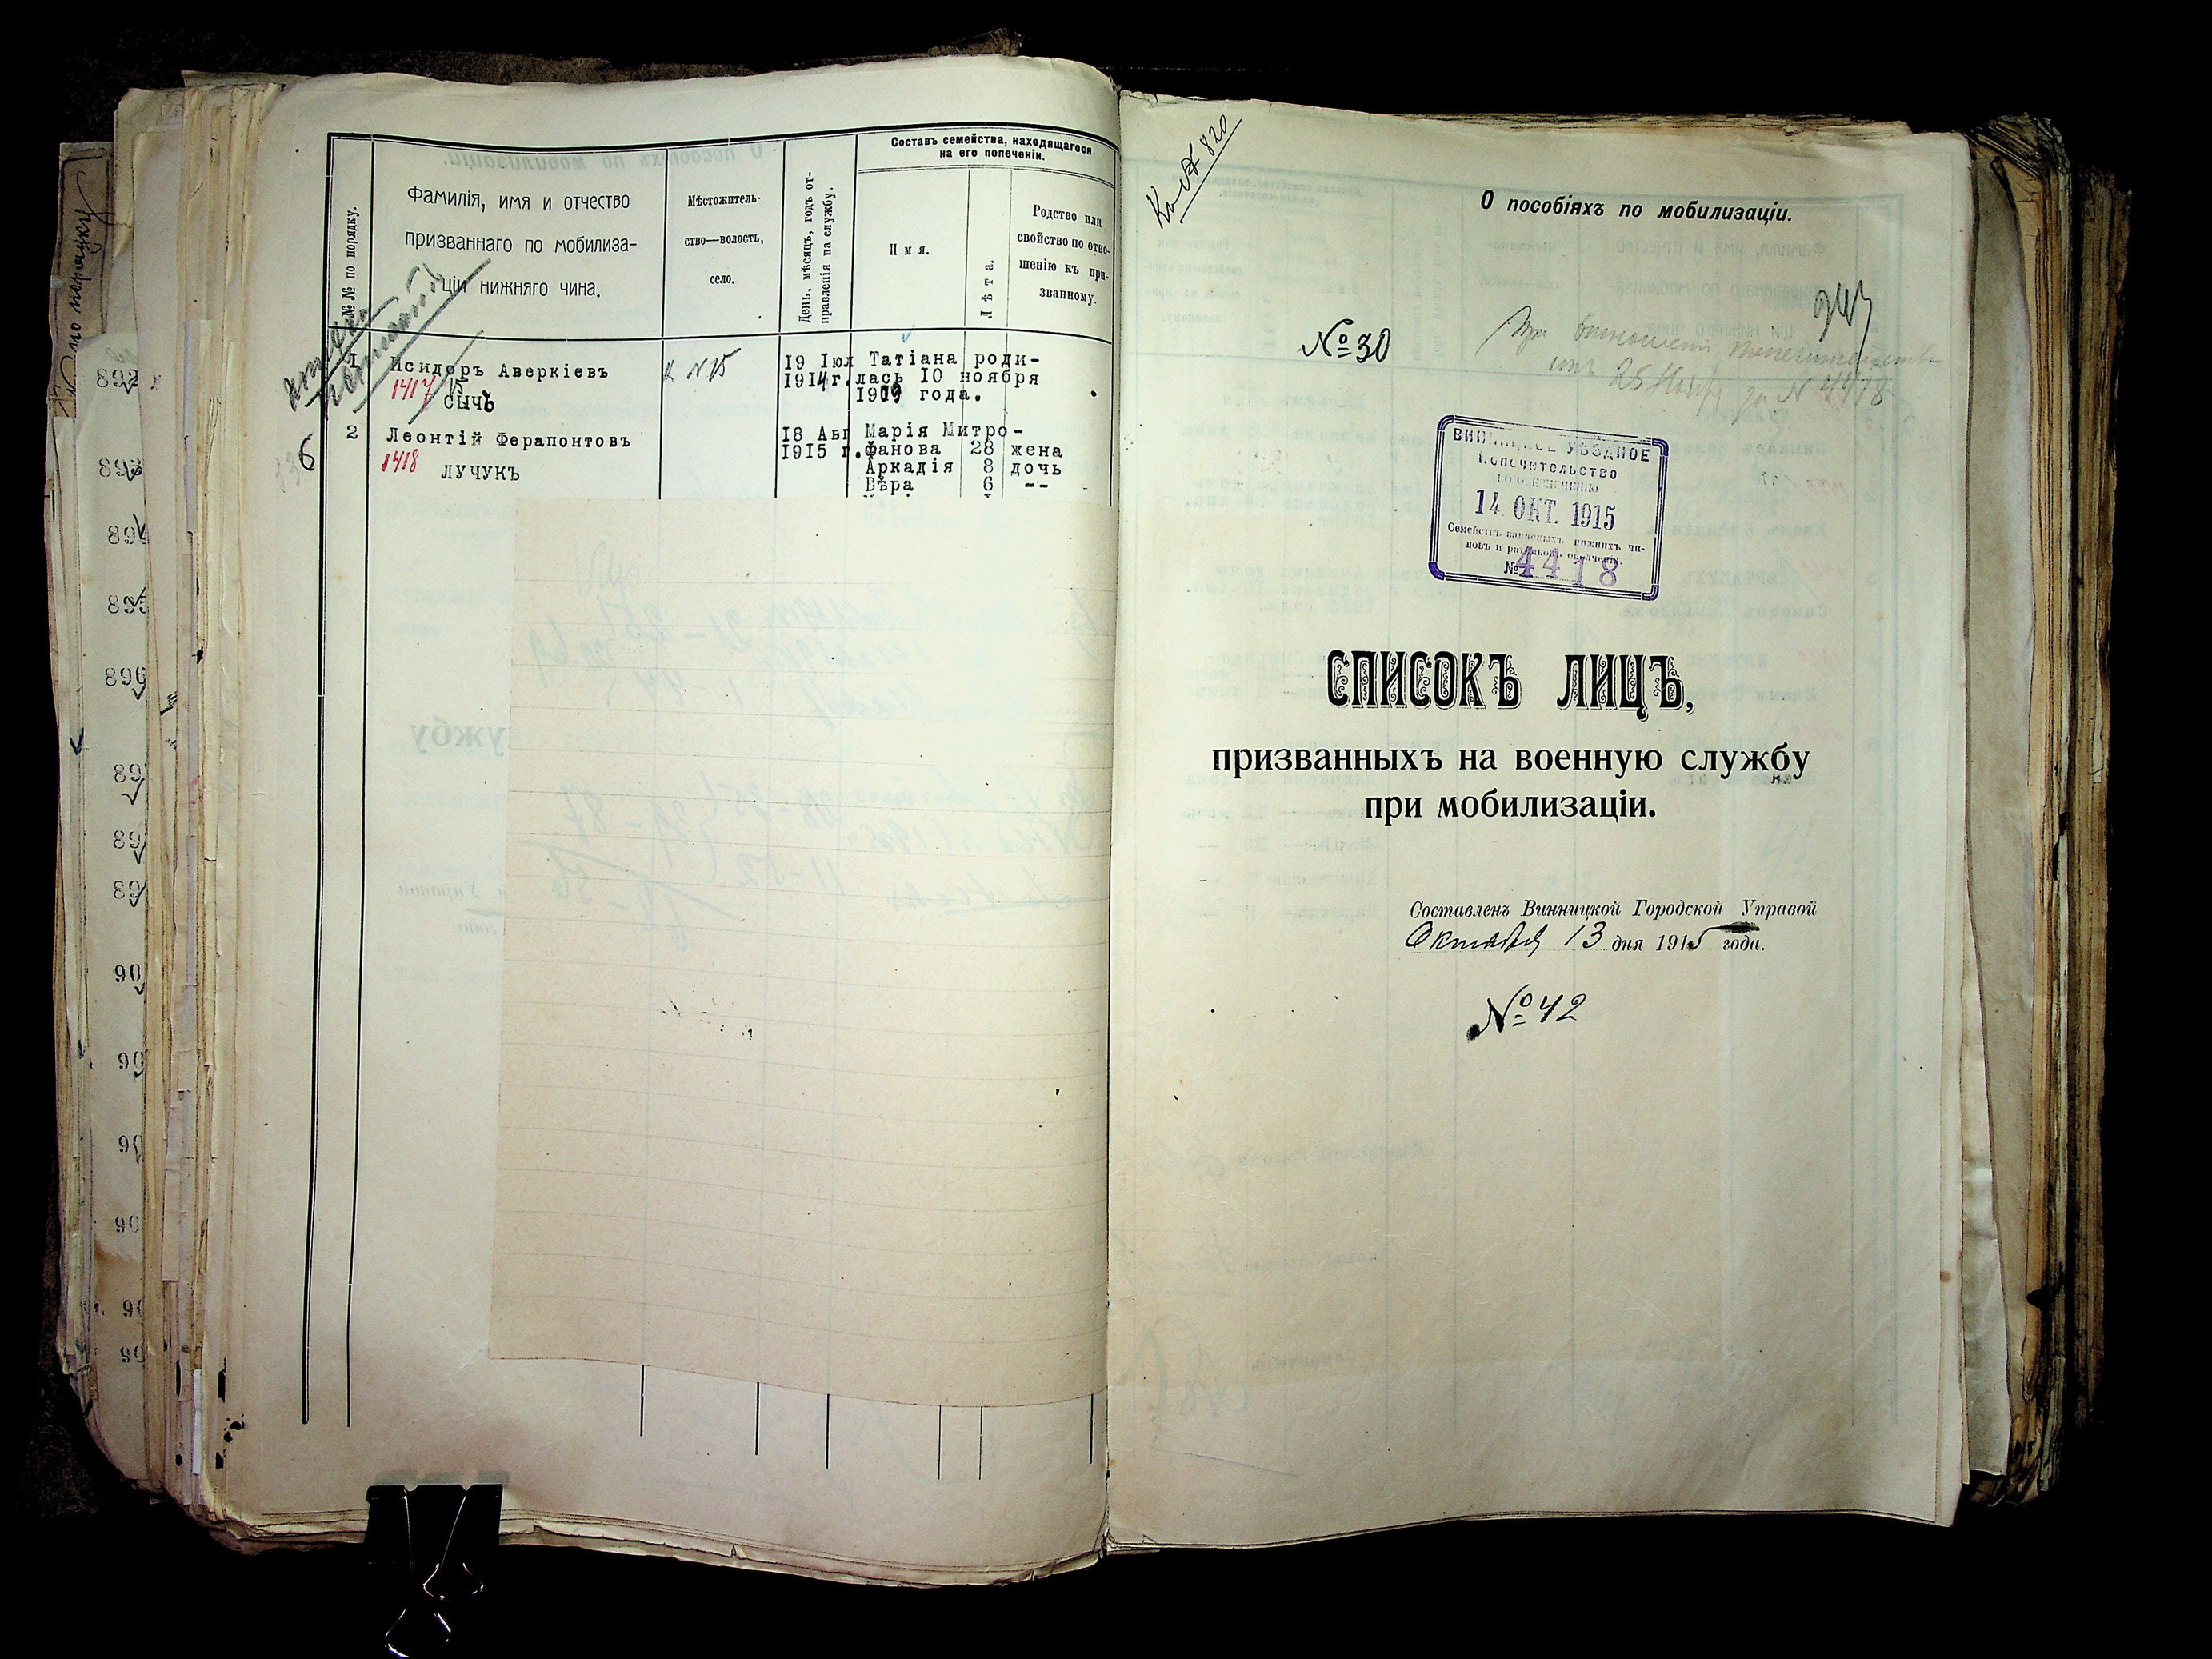 №№ по порядку.
Фамилія, имя и отчество
призваннаго по мобилиза-
ціи нижняго чина.
Мѣстожитель-
ство—волость,
село.
День, мѣсяцъ, годъ от-
правленія на службу.
Составъ семейства, находящагося
на его попеченіи.
Имя.
Лѣта.
Родство или
свойство по отно-
шенію къ при-
званному.
1
Исидоръ Аверкіевъ
1417
15
СЫЧЪ
к №15
19 Іюл
1914 г.
Татіана роди-
лась 10 ноября
1909 года.
6
2
Леонтій Ферапонтовъ
1418
ЛУЧУКЪ
18 Авг
1915 г.
Марія Митро-
фанова 28 жена
Аркадія 8 дочь
Вѣра 6 --
по порядку
892
893
894
895
896
К № 820
О пособіяхъ по мобилизаціи.
№30
25
№ 4418
ВИННИЦКОЕ УѢЗДНОЕ
Попечительство
по призрѣнію
14 ОКТ. 1915
Семействъ запасныхъ нижнихъ чи-
новъ и ратниковъ ополченія.
№ 4418
СПИСОКЪ ЛИЦЪ,
призванныхъ на военную службу
при мобилизаціи.
Составленъ Винницкой Городской Управой
Октября 13 дня 1915 года.
№42